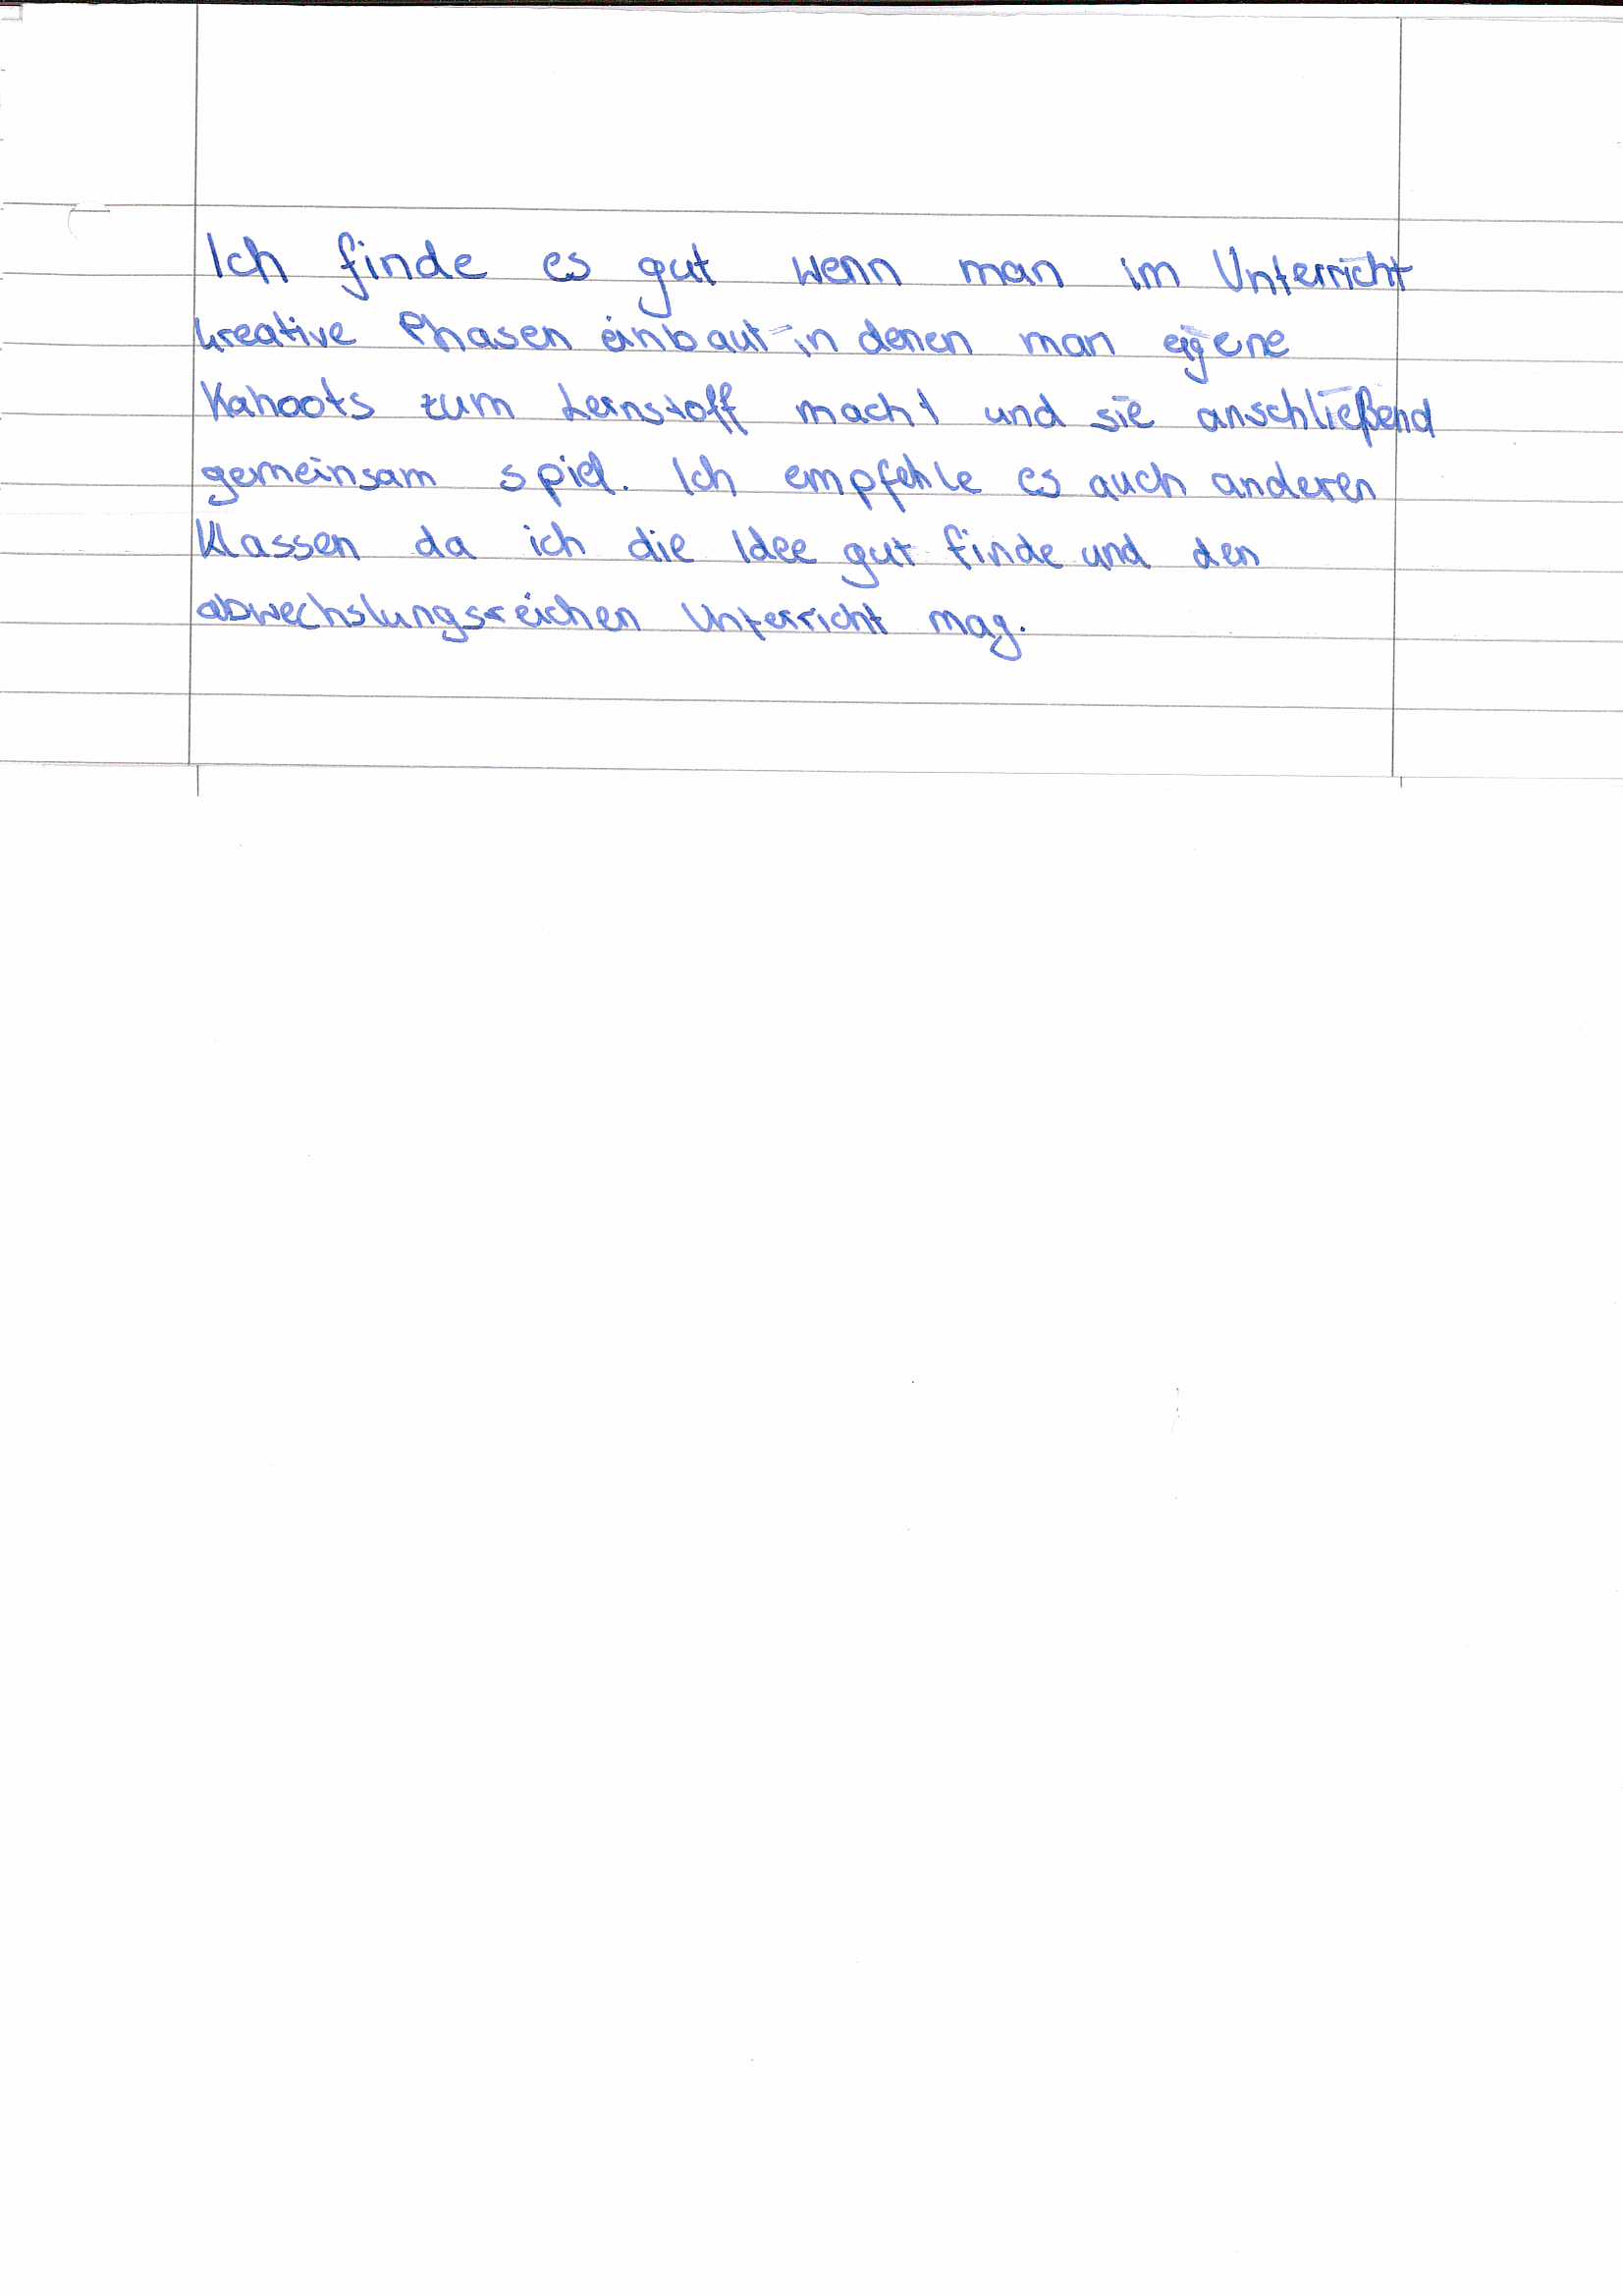 Ich finde es gut wenn man im Unterricht
kreative Phasen einbaut in denen man eigene
Kahoots zum Lernstoff macht und sie anschließend
gemeinsam spiel. Ich empfehle es auch anderen
Klassen da ich die Idee gut finde und den
abwechslungsreichen Unterricht mag.